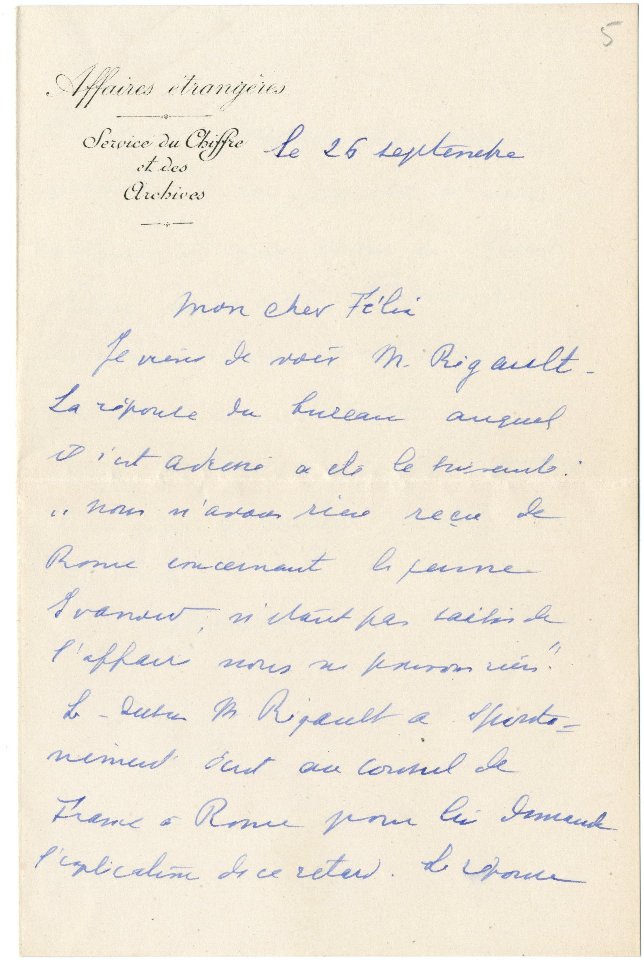 5
Affaires étrangères
Service du Chiffre
et des
Archives
le 26 septembre
Mon cher Félix
Je viens de voir M. Rigault.
La réponse du bureau auquel
il s'est adressé a été la suivante :
" nous n'avons rien reçu de
Rome concernant le jeune
Ivanow, n'étant pas saisis de
l'affaire nous ne pouvons rien".
Là-dessus M. Rigault a sponta=
nément écrit au consul de
France à Rome pour lui demander
l'explication de ce retard. La réponse